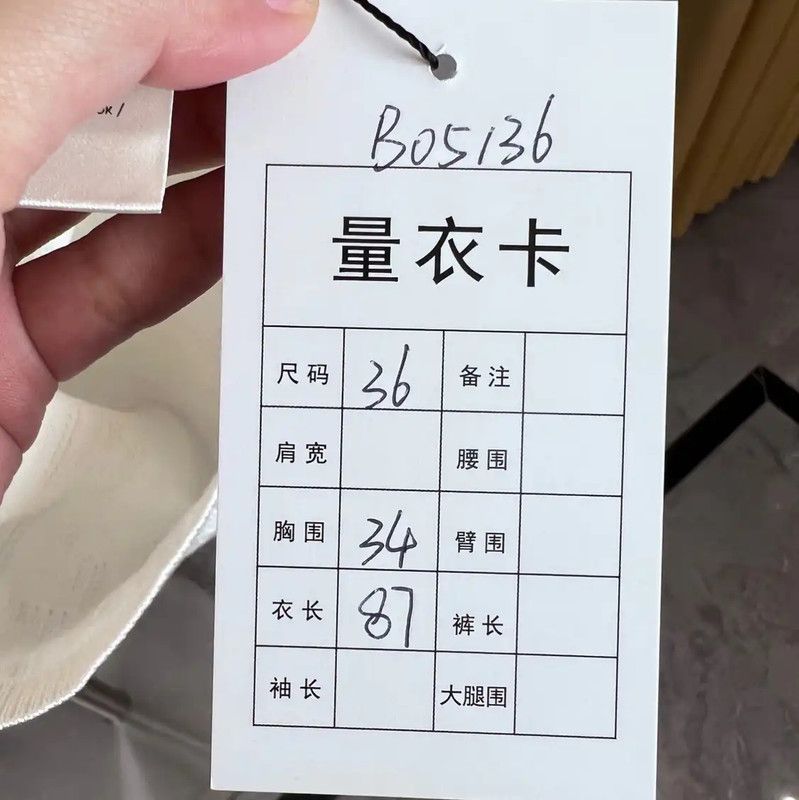 B05136
量衣卡
尺码 36 备注
肩宽 腰围
胸围 34 臂围
衣长 87 裤长
袖长 大腿围